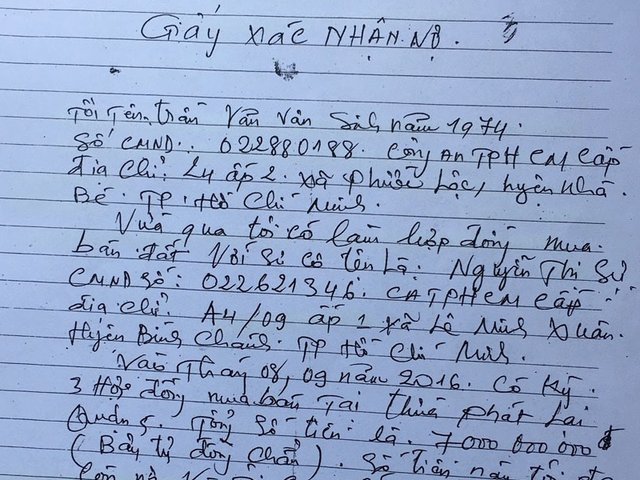 Giấy xác NHẬN NỢ.
Tôi Tên, trần Văn Vân Sinh năm 1974.
Số CMND: 022880188. Công AN TPHCM Cấp
địa chỉ: 24 ấp 2. xã phước Lộc, huyện Nhà
Bè. TP. Hồ Chí Minh.
Vừa qua tôi có làm hợp đồng mua
bán đất với sư cô tên Là: Nguyễn Thị Sự
CMND số: 022621346. CATPHCM Cấp
địa chỉ: A4/09 ấp 1 xã Lê Minh Xuân.
Huyện Bình Chánh. TP Hồ Chí Minh.
Vào Tháng 08, 09 năm 2016. Có Ký.
3 Hợp đồng mua bán Tại thừa phát Lại
Quận 5. Tổng số tiền là. 7000 000 000đ
(Bảy tỷ đồng Chẵn). Số tiền này tôi